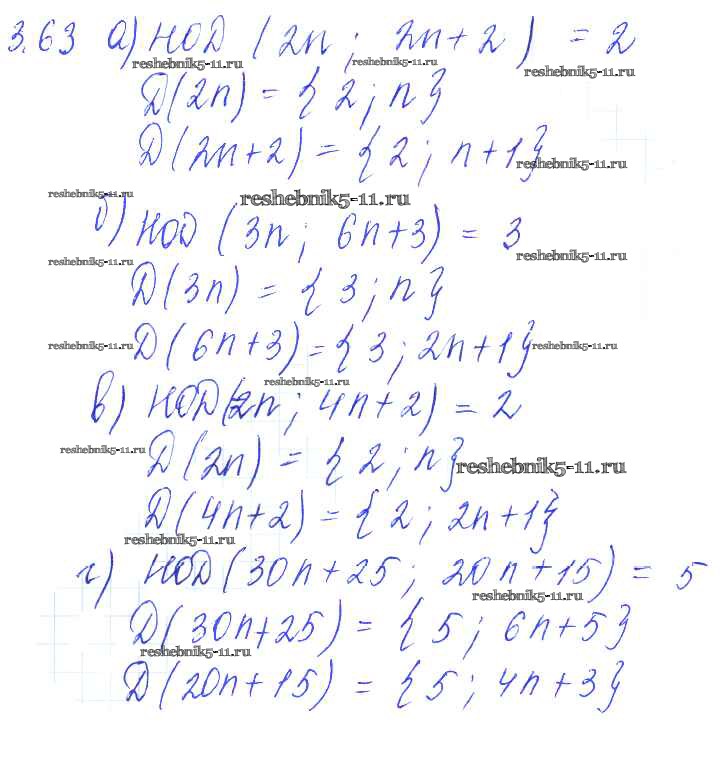 3.63 а) НОД (2n ; 2n+2) = 2
reshebnik5-11.ru reshebnik5-11.ru reshebnik5-11.ru
Д(2n) = {2; n}
Д(2n+2) = {2; n+1}
reshebnik5-11.ru
reshebnik5-11.ru reshebnik5-11.ru
б) НОД (3n; 6n+3) = 3
reshebnik5-11.ru reshebnik5-11.ru
Д(3n) = {3; n}
Д(6n+3) = {3; 2n+1}
reshebnik5-11.ru reshebnik5-11.ru
reshebnik5-11.ru
в) НОД(2n; 4n+2) = 2
reshebnik5-11.ru
Д(2n) = {2; n}
reshebnik5-11.ru
Д(4n+2) = {2; 2n+1}
reshebnik5-11.ru
г) НОД(30n+25; 20n+15) = 5
reshebnik5-11.ru
Д(30n+25) = {5; 6n+5}
reshebnik5-11.ru
Д(20n+15) = {5; 4n+3}